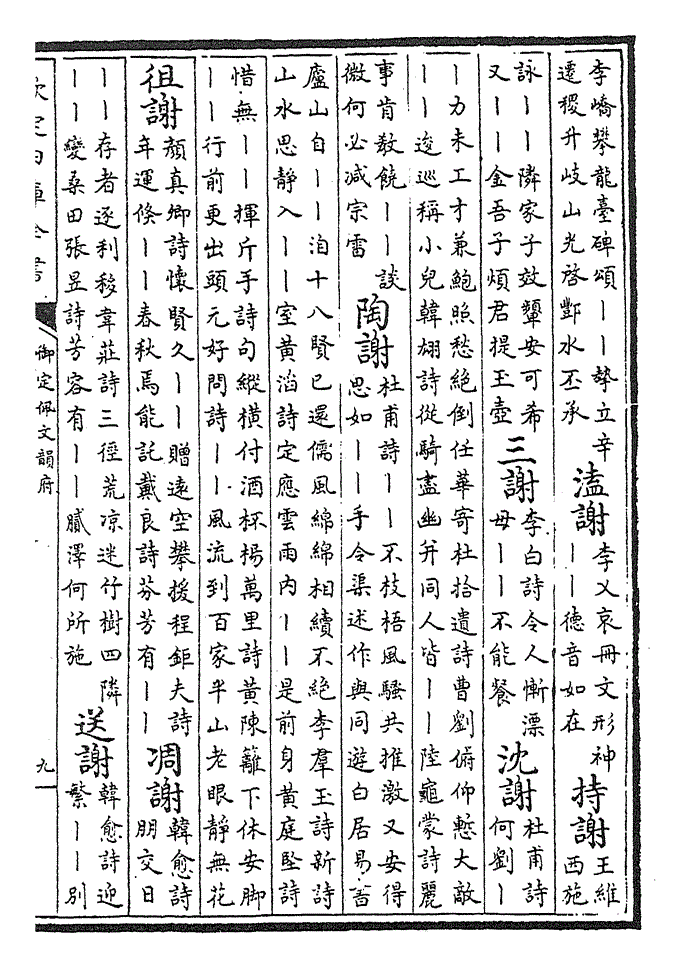 李嶠攀龍臺碑頌丨丨摯立辛
遷稷升岐山光啓酆水丕承
溘謝
李乂哀冊文形神
丨丨德音如在
持謝
王維
西施
詠丨丨隣家子效顰安可希
又丨丨金吾子煩君提玉壺
三謝
李白詩令人慚漂
母丨丨不能餐
沈謝
杜甫詩
何劉丨
丨力未工才兼鮑照愁絕倒任華寄杜拾遺詩曹劉俯仰慙大敵
丨丨逡巡稱小兒韓翃詩從騎盡幽并同人皆丨丨陸龜蒙詩麗
事肯教饒丨丨談
微何必减宗雷
陶謝
杜甫詩丨丨不枝梧風騷共推激又安得
思如丨丨手令渠述作與同遊白居易書
廬山自丨丨洎十八賢已還儒風綿綿相續不絕李羣玉詩新詩
山水思靜入丨丨室黃滔詩定應雲雨內丨丨是前身黃庭堅詩
惜無丨丨揮斤手詩句縱橫付酒杯楊萬里詩黃陳籬下休安脚
丨丨行前更出頭元好問詩丨丨風流到百家半山老眼靜無花
徂謝
顏真卿詩懷賢久丨丨贈遠空攀援程鉅夫詩
年運倏丨丨春秋焉能託戴良詩芬芳有丨丨
凋謝
韓愈詩
朋交日
丨丨存者逐利移韋莊詩三徑荒凉迷竹樹四隣
丨丨變桑田張昱詩芳容有丨丨膩澤何所施
送謝
韓愈詩迎
繁丨丨別
欽定四庫全書
御定佩文韻府
九